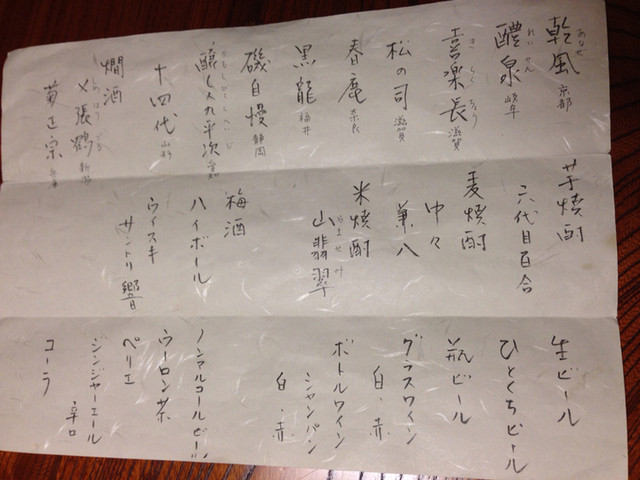 乾風 京都
あなぜ
醴泉 岐阜
れいせん
喜楽長 滋賀
きらくちょう
松の司 滋賀
春鹿 奈良
黒龍 福井
磯自慢 静岡
醸し人九平次 愛知
かもしびとくへいじ
十四代 山形
燗酒
〆張鶴 新潟
しめはりつる
菊正宗 兵庫
芋焼酎
六代目百合
麦焼酎
中々
兼八
米焼酎
山翡翠
やませみ
梅酒
ハイボール
ウイスキ
サントリ 響
生ビール
ひとくちビール
瓶ビール
グラスワイン
白・赤
ボトルワイン
シャンパン
白・赤
ノンアルコールビール
ウーロン茶
ペリエ
ジンジャーエール
辛口
コーラ